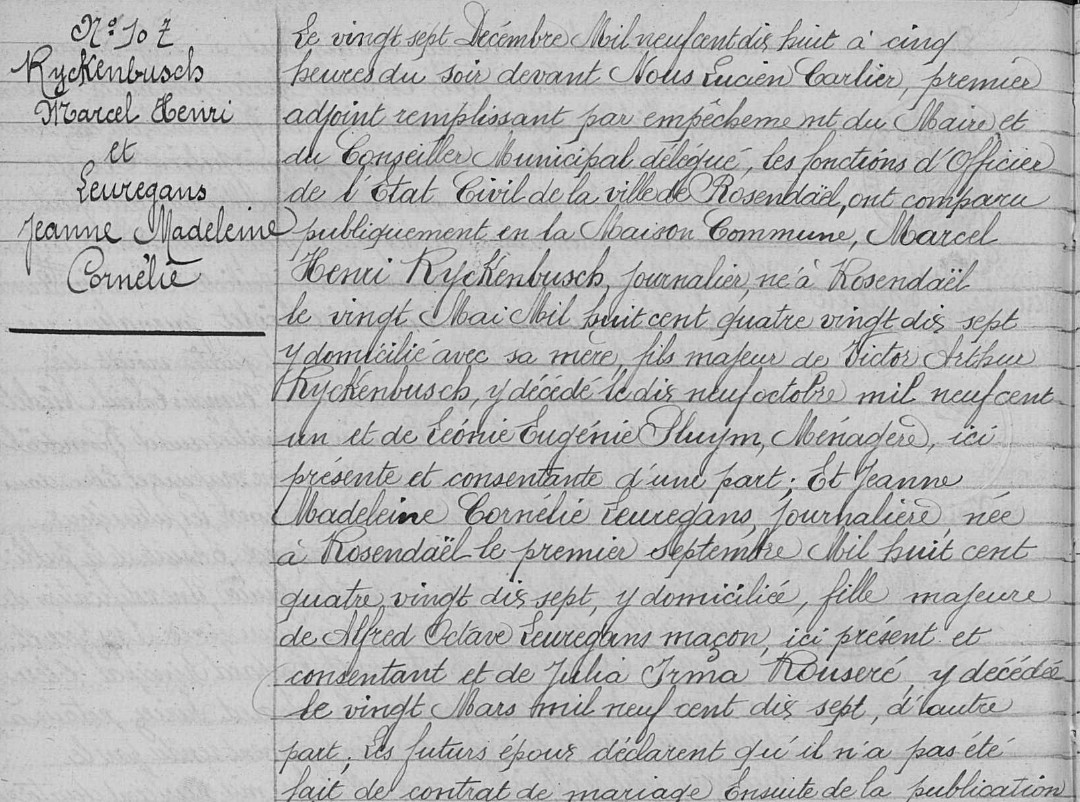 N° 107
Ryckenbusch
Marcel Henri
et
Leuregans
Jeanne Madeleine
Cornélie
Le vingt sept Décembre Mil neuf cent dix huit à cinq
heures du soir devant Nous Lucien Carlier, premier
adjoint remplissant par empêchement du Maire et
du Conseiller Municipal délégué, les fonctions d'Officier
de l'Etat Civil de la ville de Rosendaël, ont comparu
publiquement en la Maison Commune, Marcel
Henri Ryckenbusch, journalier, né à Rosendaël
le vingt Mai Mil huit cent quatre vingt dix sept
y domicilié avec sa mère, fils majeur de Victor Arthur
Ryckenbusch, y décédé le dix neuf octobre mil neuf cent
un et de Léonie Eugénie Pluym, Ménagère, ici
présente et consentante d'une part; Et Jeanne
Madeleine Cornélie Leuregans, Journalière née
à Rosendaël le premier septembre Mil huit cent
quatre vingt dix sept, y domiciliée, fille majeure
de Alfred Octave Leuregans maçon, ici présent et
consentant et de Julia Irma Rouseré y décédée
le vingt Mars mil neuf cent dix sept, d'autre
part; Les futurs époux déclarent qu'il n'a pas été
fait de contrat de mariage Ensuite de la publication